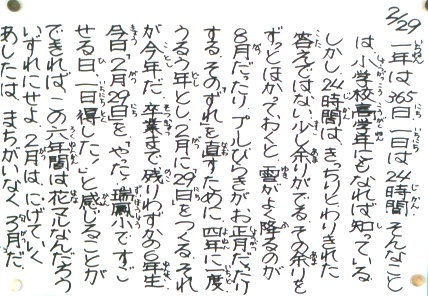 2/29
一年は365日、一日は24時間。そんなこと
は、小学校高学年にもなれば知っている。
しかし、24時間は、きっちりとわりきれた
答えではない。少し余りがでる。その余りを
ずっとほかっておくと、雪がよく降るのが
8月だったり、プールびらきがお正月だったり
する。そのずれを直すために、四年に一度
うるう年とし、2月に29日をつくる。それ
が今年だ。卒業まで残りわずかの6年生
今日、2月29日を「やった！瑞鳳小ですご
せる日、一日得した！」と感じることが
できれば、この六年間は花マルなんだろう
いずれにせよ、2月は、にげていく
あしたは、まちがいなく、3月だ。